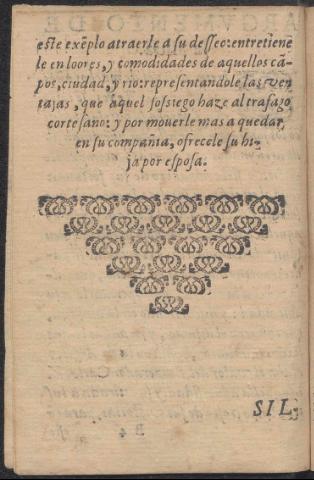 este exẽplo atraerle a su desseo: entretienẽ
le en loores, y comodidades de aquellos cã-
pos, ciudad, y rio: representandole las ven
tajas, que aquel sossiego haze al trafago
cortesano: y por mouerle mas a quedar
en su compañia, ofrecele su hi-
ja por esposa.
SIL-